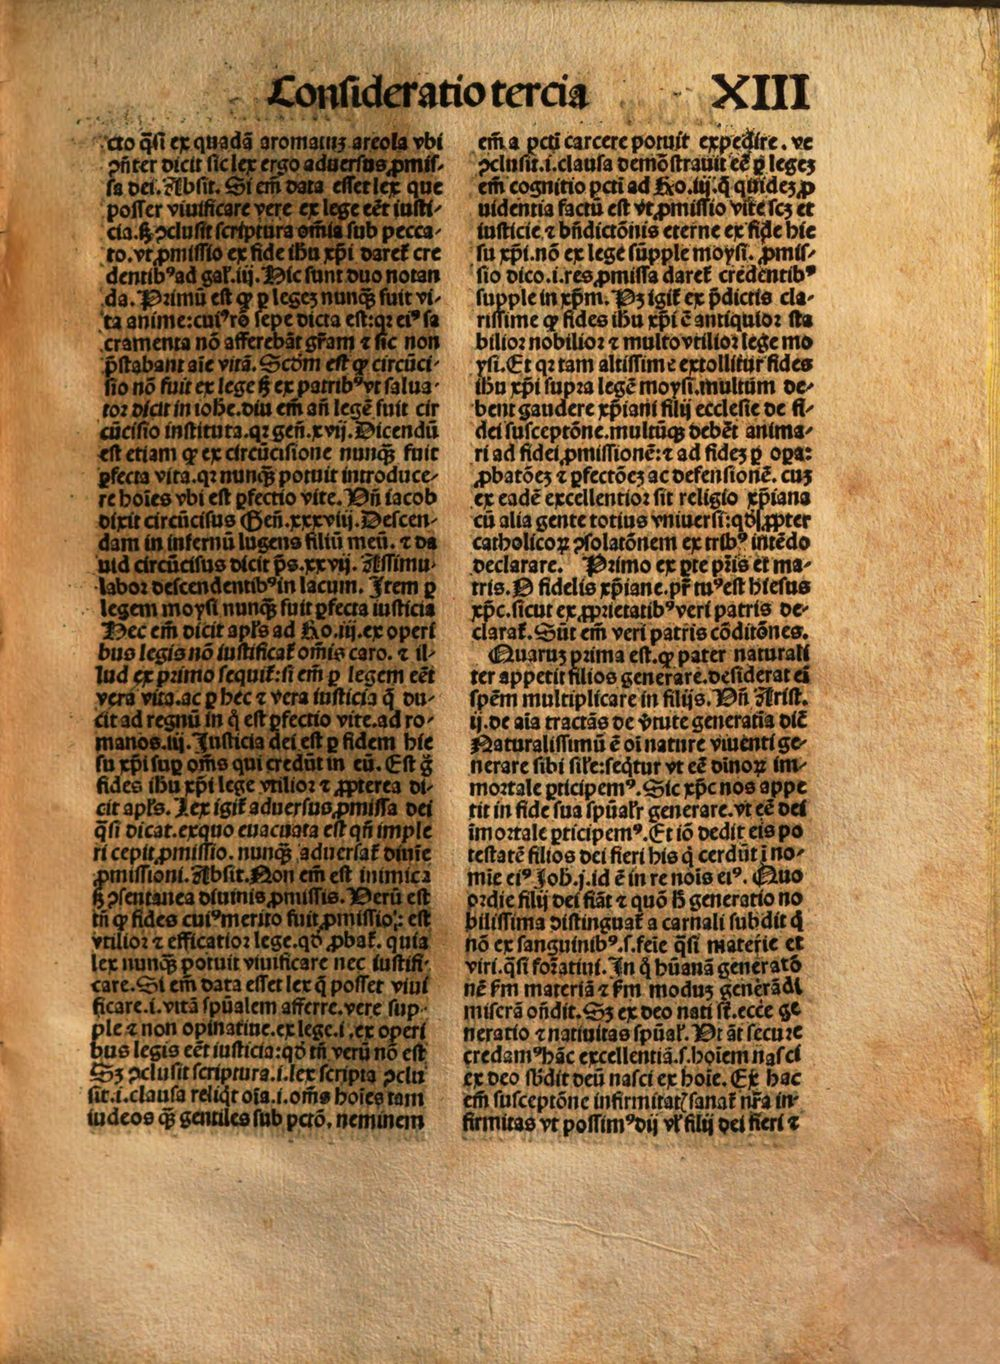 Consideratio tercia XIII
cto q̃si ex quadã aromatuʒ areola vbi
ꝯñter dicit sic lex ergo aduersus ꝓmis-
sa dei. Absit. Si em̃ data esset lex que
posset viuificare vere ex lege eẽt iusti-
cia. sʒ ꝯclusit scriptura om̃ia sub pecca-
to. vt ꝓmissio ex fide ihu xp̃i daret̃ cre
dentibꝰ ad gal̃. iij. Hic sunt duo notan
da. Primũ est ꝙ ꝑ legeʒ nunq̃ʒ fuit vi-
ta anime: cuiꝰ rõ sepe dicta est: qꝛ eiꝰ sa
cramenta nõ afferebãt gr̃am ⁊ sic non
p̃stabant aĩe vitã. Scðm est ꝙ circũci-
sio nõ fuit ex lege sʒ ex patribꝰ vt salua-
tor dicit in iohẽ. diu em̃ añ legẽ fuit cir
cũcisio instituta. qꝛ geñ. xvij. Dicendũ
est etiam ꝙ ex circũcisione nunq̃ʒ fuit
ꝑfecta vita. qꝛ nunq̃ʒ potuit introduce-
re hoĩes vbi est ꝑfectio vite. Vñ iacob
dixit circũcisus Geñ. xxxviij. Descen-
dam in infernũ lugens filiũ meũ. ⁊ da
uid circũcisus dicit p̃s. xxvij. Assimu-
labor descendentibꝰ in lacum. Item ꝑ
legem moysi nunq̃ʒ fuit ꝑfecta iusticia
Hec em̃ dicit apl̃s ad Ro. iij. ex operi
bus legis nõ iustificat̃ om̃is caro. ⁊ il-
lud ex primo sequit̃: si em̃ ꝑ legem eẽt
vera vita. ac ꝑ hec ⁊ vera iusticia q̃ du-
cit ad regnũ in q̃ est ꝑfectio vite. ad ro-
manos. iij. Iusticia dei est ꝑ fidem hie
su xp̃i suꝑ om̃s qui credũt in eũ. Est g̃
fides ihu xp̃i lege vtilior ⁊ ꝓpterea di-
cit apl̃s. Lex igit̃ aduersus ꝓmissa dei
q̃si dicat. exquo euacuata est qñ imple
ri cepit ꝓmissio. nunq̃ʒ aduersat̃ diuĩe
ꝓmissioni. Absit. Non em̃ est inimica
sʒ ꝯsentanea diuinis ꝓmissis. Verũ est
tñ ꝙ fides cuiꝰ merito fuit ꝓmissio: est
vtilior ⁊ efficatior lege. qð ꝓbat̃. quia
lex nunq̃ʒ potuit viuificare nec iustifi-
care. Si em̃ data esset lex q̃ posset viui
ficare. i. vitã spũalem afferre. vere sup-
ple ⁊ non opinatiue. ex lege. i. ex operi
bus legis eẽt iusticia: qð tñ verũ nõ est
Sʒ ꝯclusit scriptura. i. lex scripta ꝯclu
sit. i. clausa reliq̃t oĩa. i. om̃s hoĩes tam
iudeos q̃ʒ gentiles sub pctõ. neminem
em̃ a pcti carcere potuit expedire. ve
ꝯclusit. i. clausa demõstrauit eẽ ꝑ legeʒ
em̃ cognitio pcti ad Ro. iij. q̃ quideʒ ꝓ
uidentia factũ est vt ꝓmissio vite scʒ et
iusticie ⁊ bñdictõnis eterne ex fide hie
su xp̃i. nõ ex lege sũpple moysi. ꝓmis-
sio dico. i. res ꝓmissa daret̃ credentibꝰ
supple in xp̃m. Pʒ igit̃ ex p̃dictis cla-
rissime ꝙ fides ihu xp̃i ẽ antiquior sta
bilior nobilior ⁊ multo vtilior lege mo
ysi. Et qꝛ tam altissime extollitur fides
ihu xp̃i supra legẽ moysi. multum de-
bent gaudere xp̃iani filij ecclesie de fi-
dei susceptõne. multũqʒ debẽt anima-
ri ad fidei ꝓmissionẽ: ⁊ ad fideʒ ꝑ opa:
ꝓbatõeʒ ⁊ ꝑfectõeʒ ac defensionẽ. cuʒ
ex eadẽ excellentior sit religio xp̃iana
cũ alia gente totius vniuersi: qð ꝓpter
catholicoꝝ ꝯsolatõnem ex tribꝰ intẽdo
declarare. Primo ex ꝑte pr̃is et ma-
tris. O fidelis xp̃iane. pr̃ tuꝰ est hiesus
xp̃c. sicut ex ꝓprietatibꝰ veri patris de-
clarat̃. Sũt em̃ veri patris cõditões.
Quaruʒ prima est. ꝙ pater naturali
ter appetit filios generare. desiderat ei
spẽm multiplicare in filijs. Vñ Arist.
ij. de aĩa tractãs de v̓tute generatĩa diẽ
Naturalissimũ ẽ oĩ nature viuenti ge-
nerare sibi sil̃e: seq̃tur vt eẽ diuinoꝝ im-
mortale ꝑticipemꝰ. Sic xp̃c nos appe
tit in fide sua spũalr̃ generare. vt eẽ dei
ĩmortale ꝑticipemꝰ. Et iõ dedit eis po
testatẽ filios dei fieri his q̃ cerdũt ĩ no-
mĩe eiꝰ Joh̃. j. id ẽ in re noĩs eiꝰ. Quo
ordie filij dei fiãt ⁊ quõ h̃ generatio no
bilissima distinguat̃ a carnali subdit q̃
nõ ex sanguinibꝰ. s. feĩe q̃si materie et
viri. q̃si formatiui. In q̃ hũanã generatõ
nẽ fm̃ materiã ⁊ fm̃ moduʒ generãdi
miserã oñdit. Sʒ ex deo nati st̃. ecce ge
neratio ⁊ natiuitas spũal̃. Vt aũt secure
credamꝰ hãc excellentiã. s. hoĩem nasci
ex deo sb̃dit deũ nasci ex hoĩe. Ex hac
em̃ susceptõne infirmitat̃ sanat̃ nr̃a in-
firmitas vt possimꝰ dij vl̃ filij dei fieri ⁊